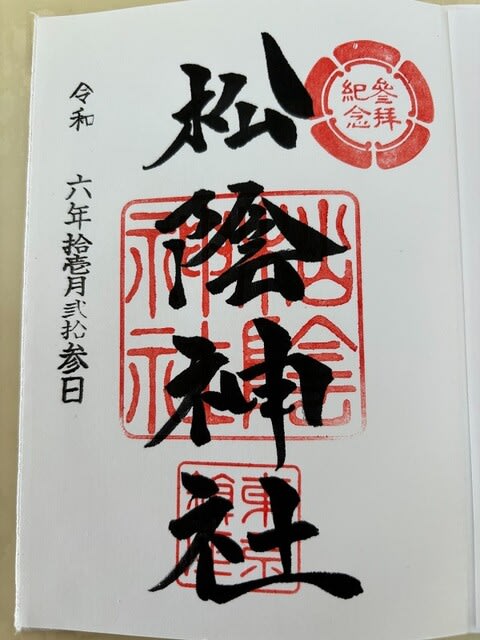 參拜
紀念
松陰神社
松陰
神社
東京
令和 六年拾壱月弐拾参日